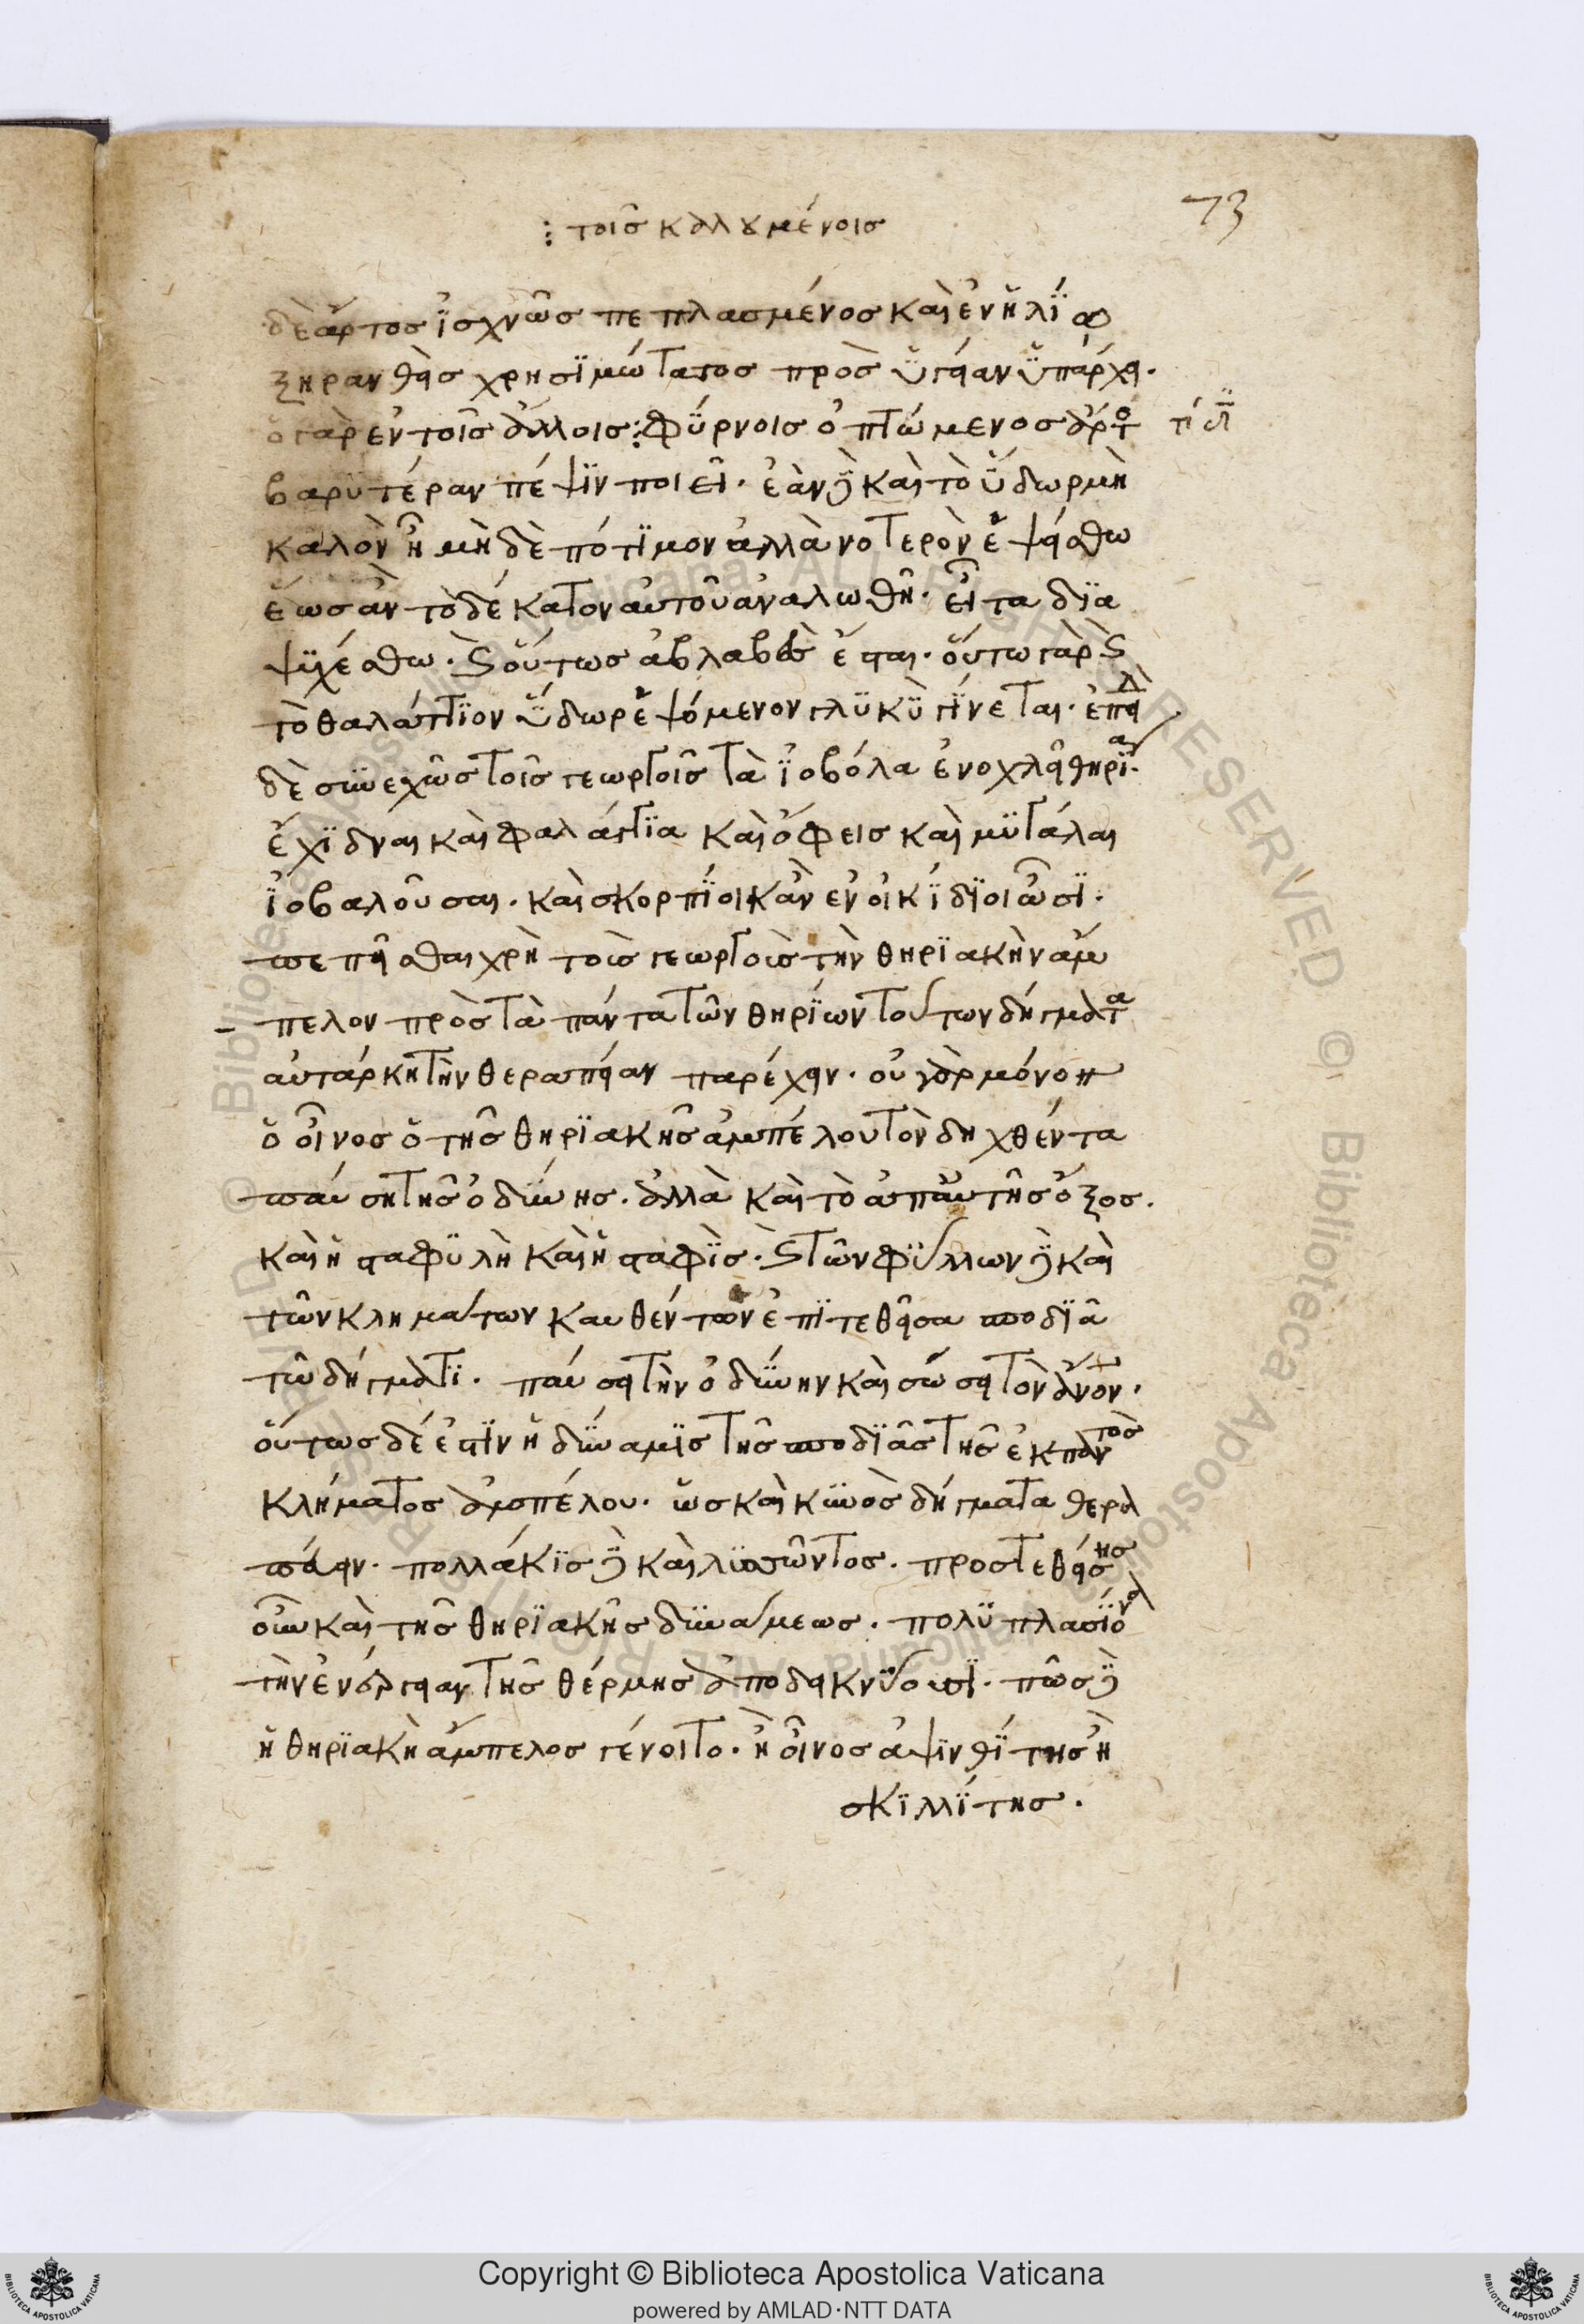 73
⁝ τοῖς καλουμένοις
δὲ ἄρτος ἰσχνῶς πεπλασμένος καὶ ἐν ἡλίῳ
ξηρανθεὶς χρησϊμώτατος πρὸς ὑγείαν ὑπάρχει.
ὁ γὰρ ἐν τοῖς ἄλλοις ⁝ φύρνοις ὀπτώμενος ἄρτο
βαρϋτέραν πέψϊν ποιεῖ. ἐὰν δὲ καὶ τὸ ὕδωρ μὴ
καλὸν ἦ μὴ δὲ πότϊμον ἀλλὰ νοτερὸν ἑψείσθω
ἕως ἂν τὸ δέκατον αὐτοῦ ἀναλωθῆ. εἶτα δϊα
ψϋχέσθω. καὶ οὕτως ἀβλαβὲς ἔσται. οὕτω γὰρ καὶ
τὸ θαλάττϊον ὕδωρ ἑψόμενον γλϋκὺ γίνεται. ἐπεὶ
δὲ συνεχῶς τοῖς γεωργοῖς τὰ ἰοβόλα ἐνοχλεῖ θηρία.
ἔχϊδναι καὶ φαλάγγϊα καὶ ὄφεις καὶ μϋγάλαι
ἰοβαλοῦσαι. καὶ σκορπίοι κἂν ἐν οἰκϊδίοι ὦσϊ.
πεπεῖσθαι χρὴ τοὶς γεωργοὶς τὴν θηρϊακὴν ἄμ
πελον πρὸς τὰ πάντα τῶν θηρίων τούτων δήγματα
αὐτάρκη τὴν θεραπείαν παρέχειν. οὐ γὰρ μόνον
ὁ οἶνος ὁ τῆς θηρϊακῆς ἀμπέλου τὸν δηχθέντα
παύση τῆς ὀδύνης. ἀλλὰ καὶ τὸ ἀπ' αὐτῆς ὄξος.
καὶ ἡ σταφϋλὴ καὶ ἡ σταφὶς. καὶ τῶν φύλλων δὲ καὶ
τῶν κλημάτων καυθέντων ἐπϊτεθεῖσα σποδϊὰ
τῶ δήγματϊ. παύσει τὴν ὀδύνην καὶ σώσει τὸν ἄνον.
οὕτως δέ ἐστϊν ἡ δύναμϊς τῆς σποδϊᾶς τῆς ἐκ παντὸς
κλήματος ἀμπέλου. ὡς καὶ κϋνὸς δήγματα θερα
πεύειν. πολλάκϊς δὲ καὶ λϋσσῶντος. προστεθείσης
οὖν καὶ τῆς θηρϊακῆς δυνάμεως. πολϋπλασίονα
τὴν ἐνέργειαν τῆς θέρμης ἀποδεικνύουσϊ. πῶς δὲ
ἡ θηρϊακὴ ἄμπελος γένοιτο. ἢ οἶνος ἀψϊνθίτης ἢ
σκϊλλίτης.